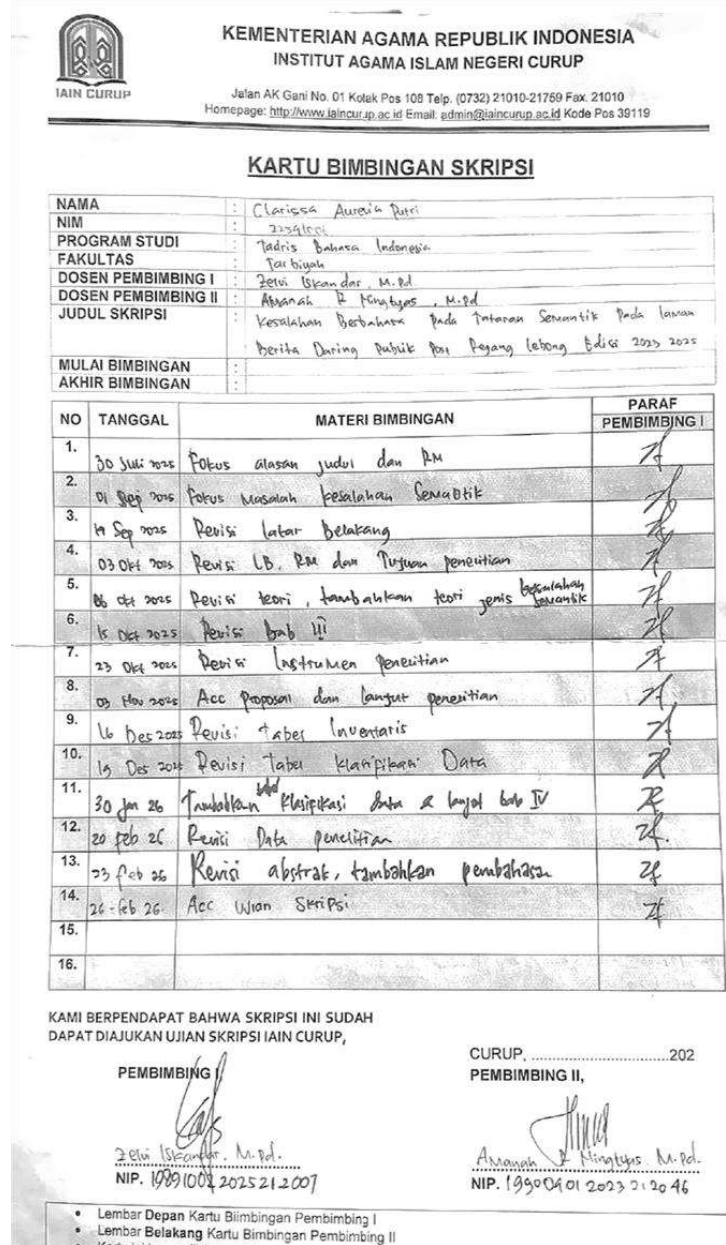 IAIN CURUP
KEMENTERIAN AGAMA REPUBLIK INDONESIA
INSTITUT AGAMA ISLAM NEGERI CURUP
Jalan AK Gani No. 01 Kotak Pos 108 Telp. (0732) 21010-21759 Fax. 21010
Homepage: http://www.iaincurup.ac.id Email: admin@iaincurup.ac.id Kode Pos 39119
KARTU BIMBINGAN SKRIPSI
NAMA : Clarissa Aurelia Putri
NIM :
PROGRAM STUDI : Tadris Bahasa Indonesia
FAKULTAS : Tarbiyah
DOSEN PEMBIMBING I : Zelvi Iskandar, M.Pd
DOSEN PEMBIMBING II : Amanah R Ningtyas, M.Pd
JUDUL SKRIPSI : Kesalahan Berbahasa Pada Tataran Semantik Pada laman
Berita Daring Publik Post Rejang Lebong Edisi 2023 2025
MULAI BIMBINGAN :
AKHIR BIMBINGAN :
NO TANGGAL MATERI BIMBINGAN PARAF
PEMBIMBING I
1. 30 Juli 2025 Fokus alasan judul dan RM
2. 01 Sep 2025 Fokus Masalah kesalahan Semantik
3. 19 Sep 2025 Revisi latar Belakang
4. 03 Okt 2025 Revisi LB, RM dan Tujuan penelitian
5. 06 Okt 2025 Revisi teori, tambahkan teori jenis kesalahan semantik
6. 15 Okt 2025 Revisi bab III
7. 23 Okt 2025 Revisi Instrumen penelitian
8. 03 Nov 2025 Acc Proposal dan lanjut penelitian
9. 16 Des 2025 Revisi tabel Inventaris
10. 19 Des 2025 Revisi Tabel klasifikasi Data
11. 30 Jan 26 Tambahkan tabel klasifikasi data & lanjut bab IV
12. 20 feb 26 Revisi Data penelitian
13. 23 feb 26 Revisi abstrak, tambahkan pembahasan
14. 26-feb 26 Acc Ujian Skripsi
15.
16.
KAMI BERPENDAPAT BAHWA SKRIPSI INI SUDAH
DAPAT DIAJUKAN UJIAN SKRIPSI IAIN CURUP,
CURUP, ..............................202
PEMBIMBING I
PEMBIMBING II,
Zelvi Iskandar, M.Pd.
Amanah R Ningtyas. M.Pd.
NIP. 199009012023212046
• Lembar Depan Kartu Biimbingan Pembimbing I
• Lembar Belakang Kartu Bimbingan Pembimbing II